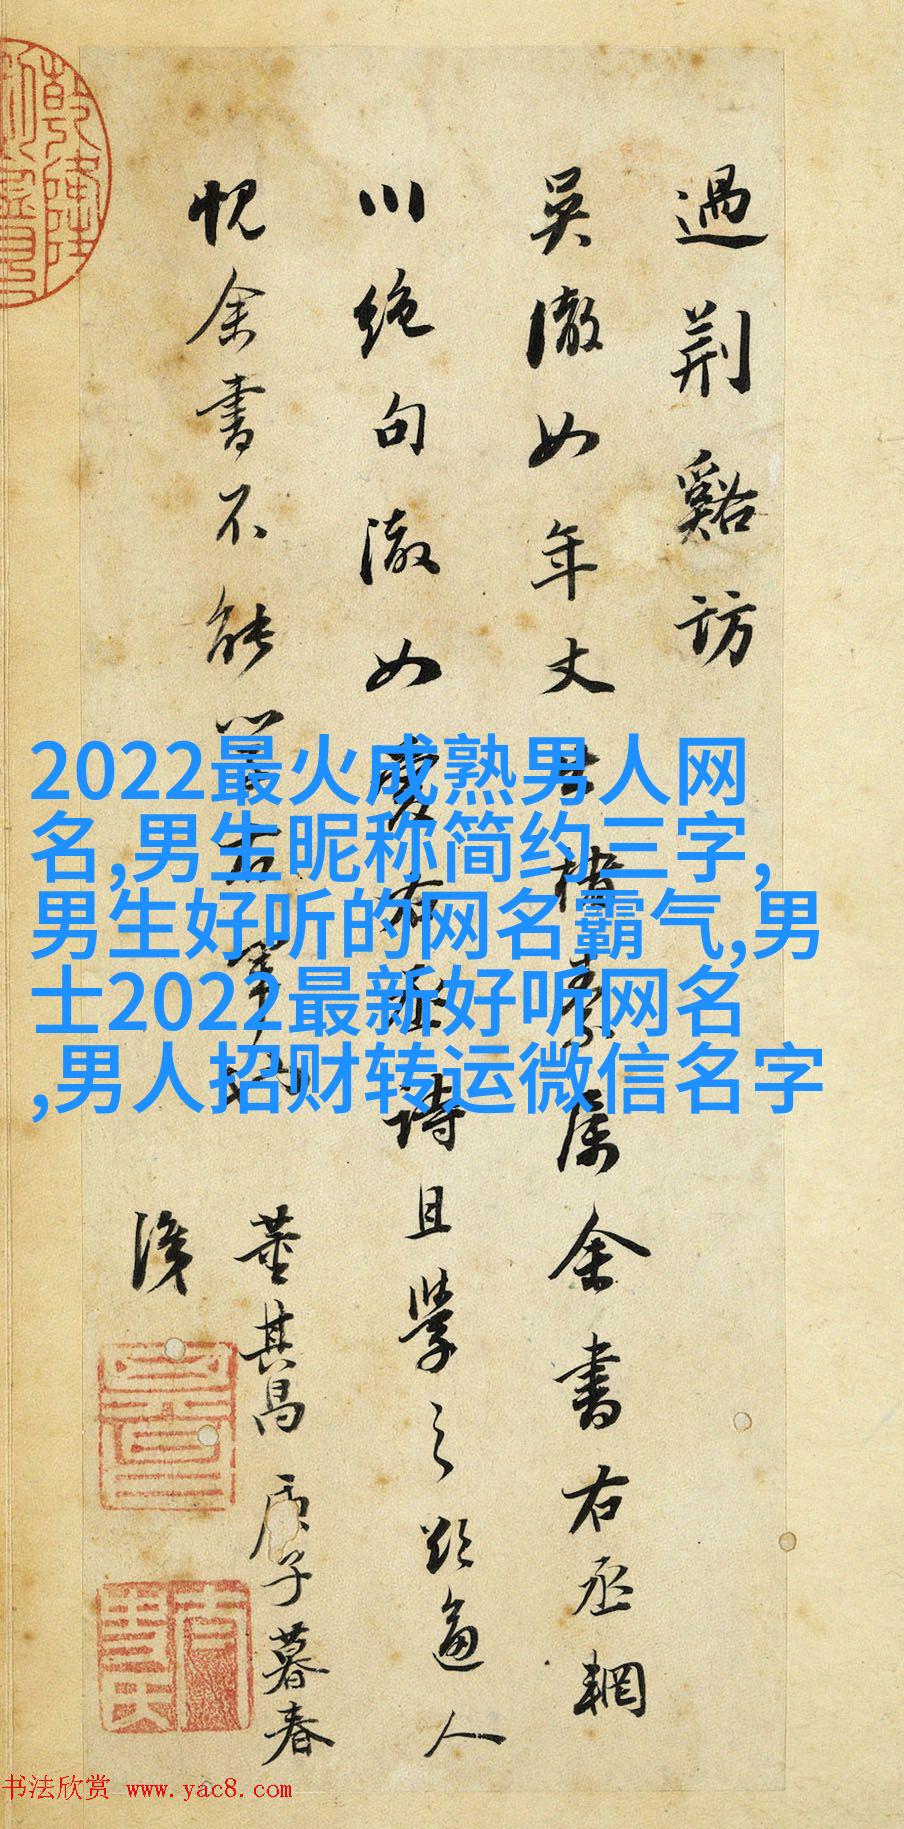 過荆谿訪
吳澈如年丈楮素屬余書右丞輞
川絶句澈如愛右丞詩且學之逼人
愧余書不能右軍
董其昌庚子暮春
2022最火成熟男人网
名,男生昵称简约三字,
男生好听的网名霸气,男
士2022最新好听网名
,男人招财转运微信名字
书法欣赏 www.yac8.com